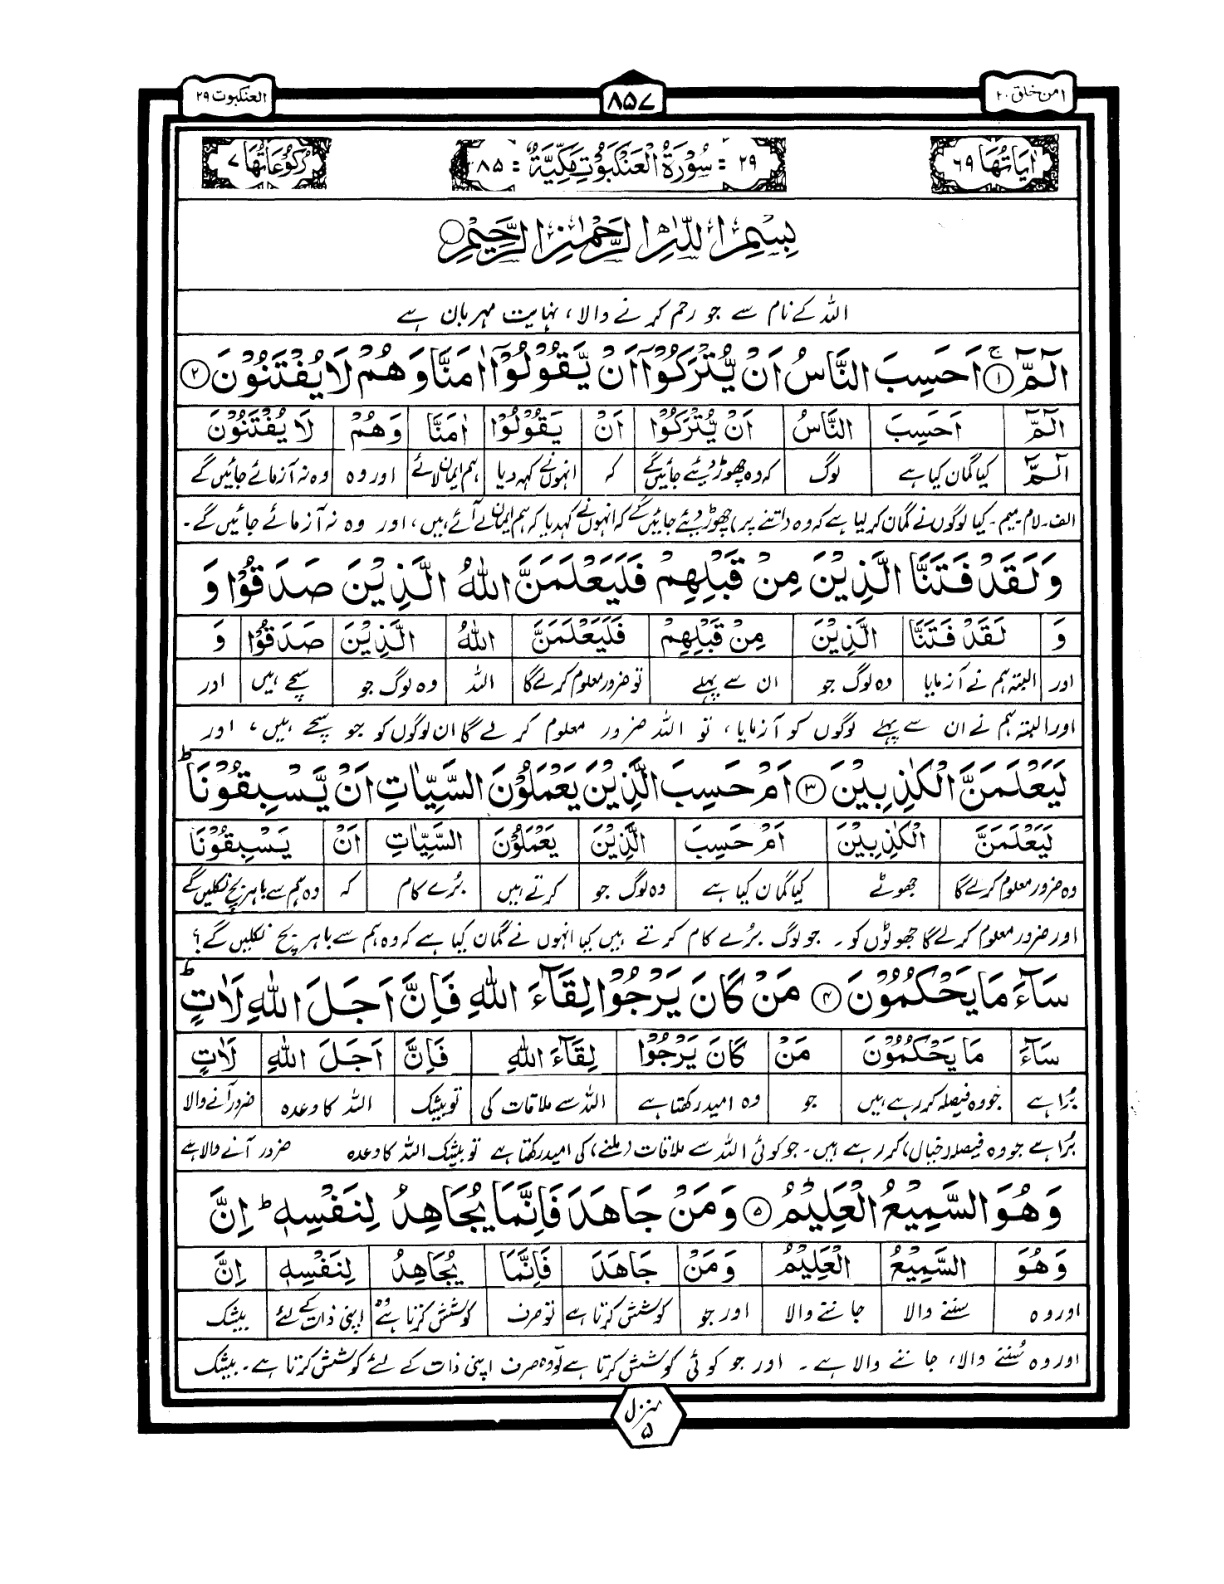 العنکبوت ۲۹ ۸۵۷ امن خلق ۲۰
اٰیَاتُهَا ۶۹ ۲۹ : سُوْرَةُ الْعَنْکَبُوْتِ مَکِّیَّةٌ : ۸۵ رُکُوْعَاتُهَا ۷
بِسْمِ اللّٰهِ الرَّحْمٰنِ الرَّحِیْمِ
اللہ کے نام سے جو رحم کرنے والا، نہایت مہربان ہے
الٓمّٓ ۚ﴿۱﴾ اَحَسِبَ النَّاسُ اَنْ یُّتْرَكُوْۤا اَنْ یَّقُوْلُوْۤا اٰمَنَّا وَ هُمْ لَا یُفْتَنُوْنَ ﴿۲﴾
الٓمّٓ اَحَسِبَ النَّاسُ اَنْ یُّتْرَكُوْۤا اَنْ یَقُوْلُوْۤا اٰمَنَّا وَهُمْ لَا یُفْتَنُوْنَ
الٓمّٓ کیا گمان کیا ہے لوگ کہ وہ چھوڑ دیئے جائیں گے کہ انہوں نے کہہ دیا ہم ایمان لائے اور وہ وہ نہ آزمائے جائیں گے
الف۔لام۔میم۔ کیا لوگوں نے گمان کر لیا ہے کہ وہ (اتنے پر) چھوڑ دیئے جائیں گے کہ انہوں نے کہہ دیا کہ ہم ایمان لے آئے ہیں، اور وہ نہ آزمائے جائیں گے۔
وَ لَقَدْ فَتَنَّا الَّذِیْنَ مِنْ قَبْلِهِمْ فَلَیَعْلَمَنَّ اللّٰهُ الَّذِیْنَ صَدَقُوْا وَ
وَ لَقَدْ فَتَنَّا الَّذِیْنَ مِنْ قَبْلِهِمْ فَلَیَعْلَمَنَّ اللّٰهُ الَّذِیْنَ صَدَقُوْا وَ
اور البتہ ہم نے آزمایا وہ لوگ جو ان سے پہلے تو ضرور معلوم کرلے گا اللہ وہ لوگ جو سچے ہیں اور
اور البتہ ہم نے ان سے پہلے لوگوں کو آزمایا، تو اللہ ضرور معلوم کر لے گا ان لوگوں کو جو سچے ہیں، اور
لَیَعْلَمَنَّ الْكٰذِبِیْنَ ﴿۳﴾ اَمْ حَسِبَ الَّذِیْنَ یَعْمَلُوْنَ السَّیِّاٰتِ اَنْ یَّسْبِقُوْنَا ؕ
لَیَعْلَمَنَّ الْكٰذِبِیْنَ اَمْ حَسِبَ الَّذِیْنَ یَعْمَلُوْنَ السَّیِّاٰتِ اَنْ یَسْبِقُوْنَا
وہ ضرور معلوم کرلے گا جھوٹے کیا گمان کیا ہے وہ لوگ جو کرتے ہیں بُرے کام کہ وہ ہم سے باہر بچ نکلیں گے
اور ضرور معلوم کرلے گا جھوٹوں کو۔ جو لوگ بُرے کام کرتے ہیں کیا انہوں نے گمان کیا ہے کہ وہ ہم سے باہر بچ نکلیں گے؟
سَآءَ مَا یَحْكُمُوْنَ ﴿۴﴾ مَنْ كَانَ یَرْجُوْا لِقَآءَ اللّٰهِ فَاِنَّ اَجَلَ اللّٰهِ لَاٰتٍ ؕ
سَآءَ مَا یَحْكُمُوْنَ مَنْ كَانَ یَرْجُوْا لِقَآءَ اللّٰهِ فَاِنَّ اَجَلَ اللّٰهِ لَاٰتٍ
بُرا ہے جو وہ فیصلہ کر رہے ہیں جو وہ امید رکھتا ہے اللہ سے ملاقات کی تو بیشک اللہ کا وعدہ ضرور آنے والا
بُرا ہے جو وہ فیصلہ (خیال) کر رہے ہیں۔ جو کوئی اللہ سے ملاقات (ملنے) کی امید رکھتا ہے تو بیشک اللہ کا وعدہ ضرور آنے والا ہے
وَ هُوَ السَّمِیْعُ الْعَلِیْمُ ﴿۵﴾ وَ مَنْ جَاهَدَ فَاِنَّمَا یُجَاهِدُ لِنَفْسِهٖ ؕ اِنَّ
وَ هُوَ السَّمِیْعُ الْعَلِیْمُ وَمَنْ جَاهَدَ فَاِنَّمَا یُجَاهِدُ لِنَفْسِهٖ اِنَّ
اور وہ سننے والا جاننے والا اور جو کوشش کرتا ہے تو صرف وہ کوشش کرتا ہے اپنی ذات کے لئے بیشک
اور وہ سُننے والا، جاننے والا ہے۔ اور جو کوئی کوشش کرتا ہے تو وہ صرف اپنی ذات کے لئے کوشش کرتا ہے۔ بیشک
منزل ۵